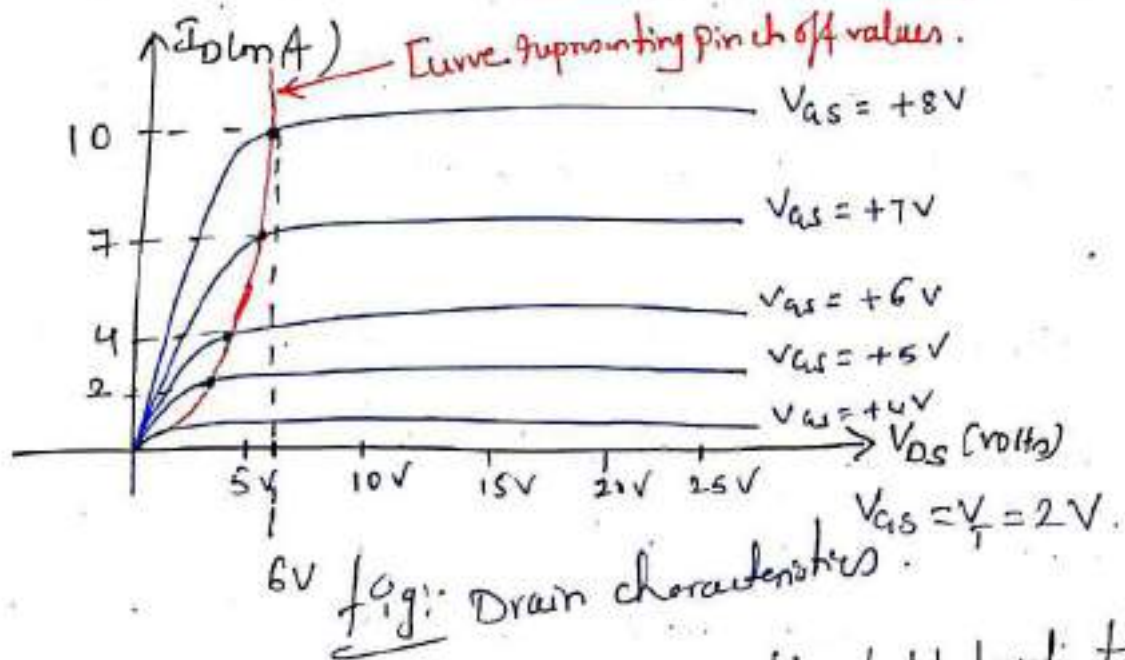 ID (mA)
Curve representing pinch off values.
10
VGS = +8V
7
VGS = +7V
VGS = +6V
4
VGS = +5V
2
VGS = +4V
VDS (volts)
5V 10V 15V 20V 25V
VGS = VT = 2V.
6V
fig:- Drain characteristics.